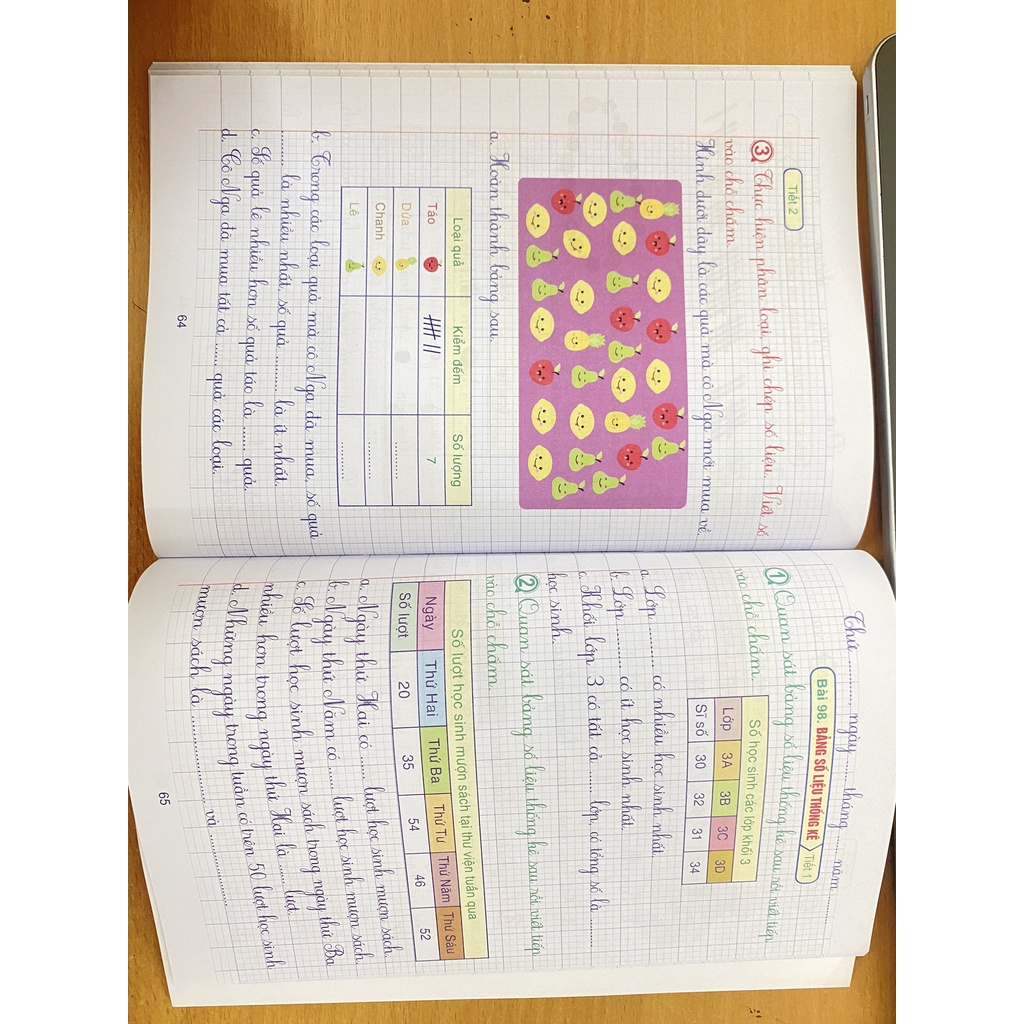 Tiết 2
3 Thực hiện phân loại, ghi chép số liệu. Viết số
vào chỗ chấm.
Hình dưới đây là các quả mà cô Nga mới mua về.
a. Hoàn thành bảng sau.
Loại quả Kiểm đếm Số lượng
Táo 7
Dứa ........
Chanh ........
Lê ........
b. Trong các loại quả mà cô Nga đã mua, số quả
........ là nhiều nhất, số quả ........ là ít nhất.
c. Số quả lê nhiều hơn số quả táo là ........ quả.
d. Cô Nga đã mua tất cả ........ quả các loại.
64
Thứ ........ ngày ........ tháng ........ năm ........
Bài 98. BẢNG SỐ LIỆU THỐNG KÊ Tiết 1
1 Quan sát bảng số liệu thống kê sau rồi viết tiếp
vào chỗ chấm.
Số học sinh các lớp khối 3
Lớp 3A 3B 3C 3D
Sĩ số 30 32 31 34
a. Lớp ........ có nhiều học sinh nhất.
b. Lớp ........ có ít học sinh nhất.
c. Khối lớp 3 có tất cả ........ lớp, có tổng số là ........
học sinh.
2 Quan sát bảng số liệu thống kê sau rồi viết tiếp
vào chỗ chấm.
Số lượt học sinh mượn sách tại thư viện tuần qua
Ngày Thứ Hai Thứ Ba Thứ Tư Thứ Năm Thứ Sáu
Số lượt 20 35 54 46 52
a. Ngày thứ Hai có ........ lượt học sinh mượn sách.
b. Ngày thứ Năm có ........ lượt học sinh mượn sách.
c. Số lượt học sinh mượn sách trong ngày thứ Ba
nhiều hơn trong ngày thứ Hai là ........ lượt.
d. Những ngày trong tuần có trên 50 lượt học sinh
mượn sách là ........ và ........
65